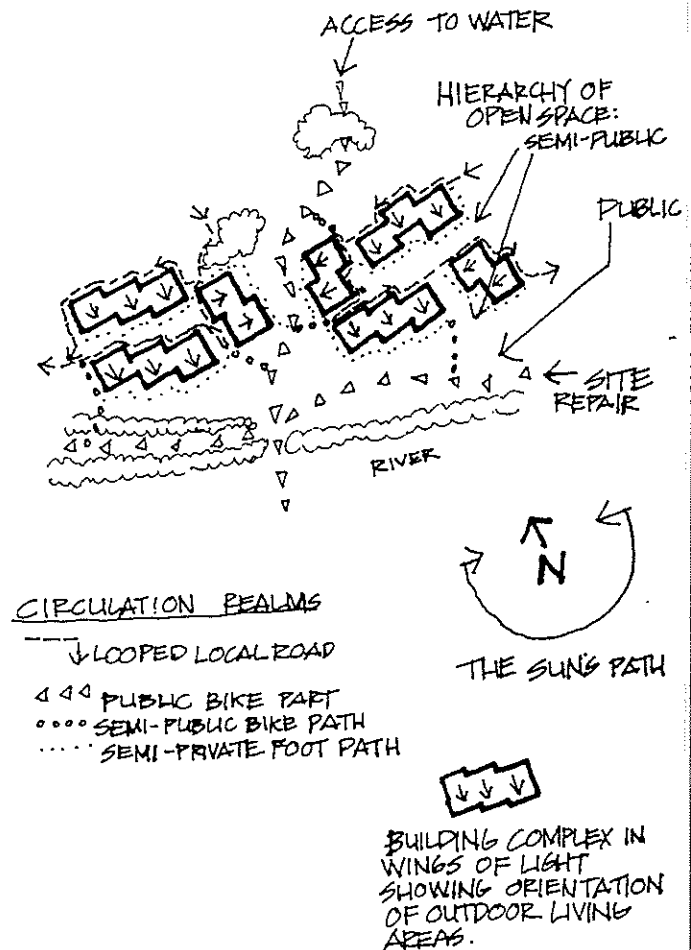 ACCESS TO WATER
HIERARCHY OF
OPEN SPACE:
SEMI-PUBLIC
PUBLIC
SITE
REPAIR
RIVER
N
THE SUN'S PATH
CIRCULATION REALMS
LOOPED LOCAL ROAD
PUBLIC BIKE PART
SEMI-PUBLIC BIKE PATH
SEMI-PRIVATE FOOT PATH
BUILDING COMPLEX IN
WINGS OF LIGHT
SHOWING ORIENTATION
OF OUTDOOR LIVING
AREAS.